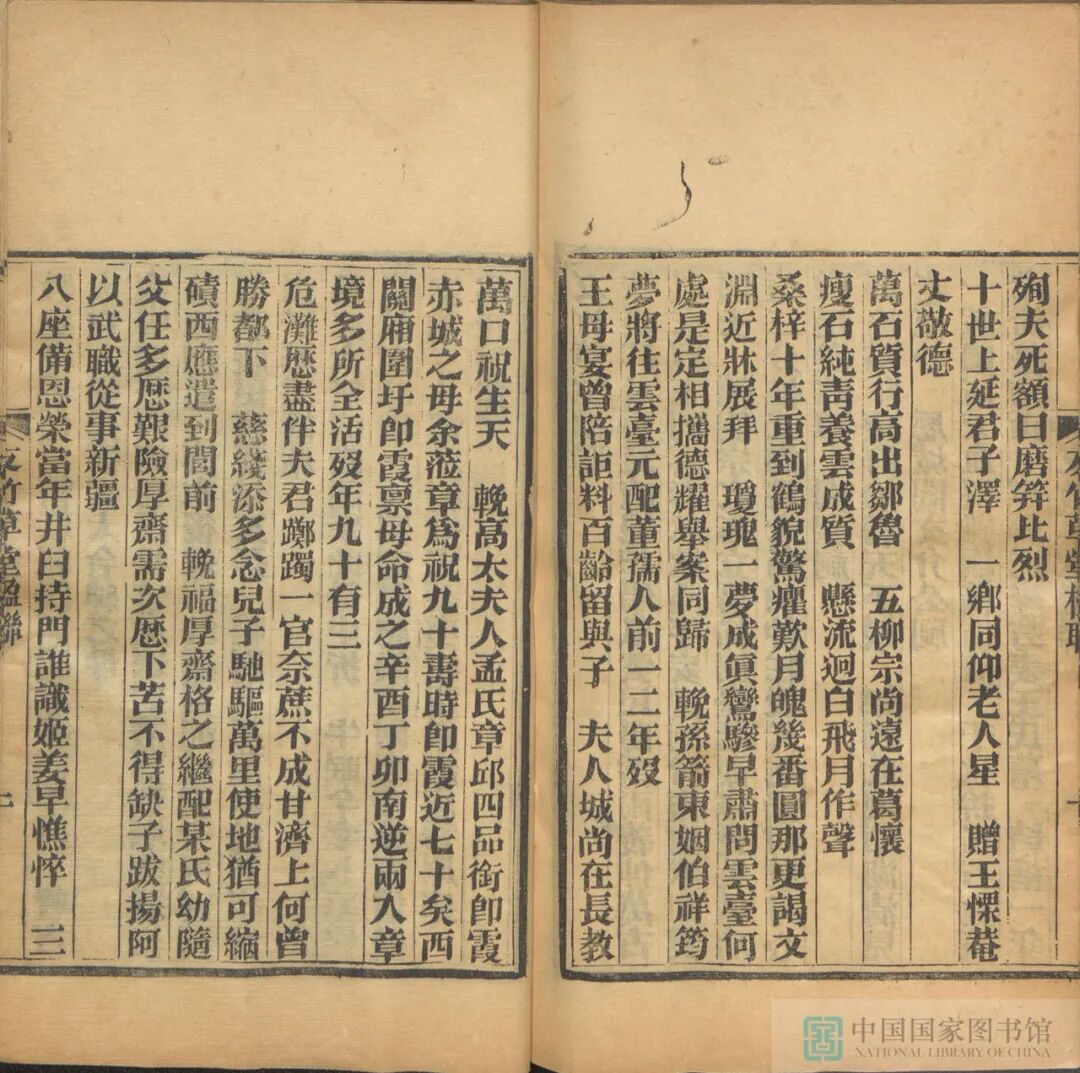 殉夫死額曰磨笄比烈
十世上延君子澤　一鄉同仰老人星　贈王慄菴
丈敬德
萬石質行高出鄒魯　五柳宗尚遠在葛懷
瘦石純青養雲成質　懸流迴白飛月作聲
桑梓十年重到鶴貌驚癯歎月魄幾番圓那更謁文
淵近牀展拜　瓊瑰一夢成眞鸞驂早肅問雲臺何
處是定相攜德耀舉案同歸　輓孫箭東姻伯祥筠
夢將往雲臺元配董孺人前一二年歿
王母宴曾陪詎料百齡留與子　夫人城尚在長教
萬口祝生天　輓高太夫人孟氏章邱四品銜卽霞
赤城之母余蒞章爲祝九十壽時卽霞近七十矣西
關廂圍圩卽霞禀母命成之辛酉丁卯南逆兩入章
境多所全活歿年九十有三
危灘歴盡伴夫君躑躅一官奈蔗不成甘濟上何曾
勝都下　慈綫添多念兒子馳驅萬里使地猶可縮
磧西應遣到閣前　輓福厚齋格之繼配某氏幼隨
父任多歴艱險厚齋需次歴下苦不得缺子跋揚阿
以武職從事新疆
八座備恩榮當年井臼持門誰識姬姜早憔悴　三
草堂楹聯
中国国家图书馆
NATIONAL LIBRARY OF CHINA